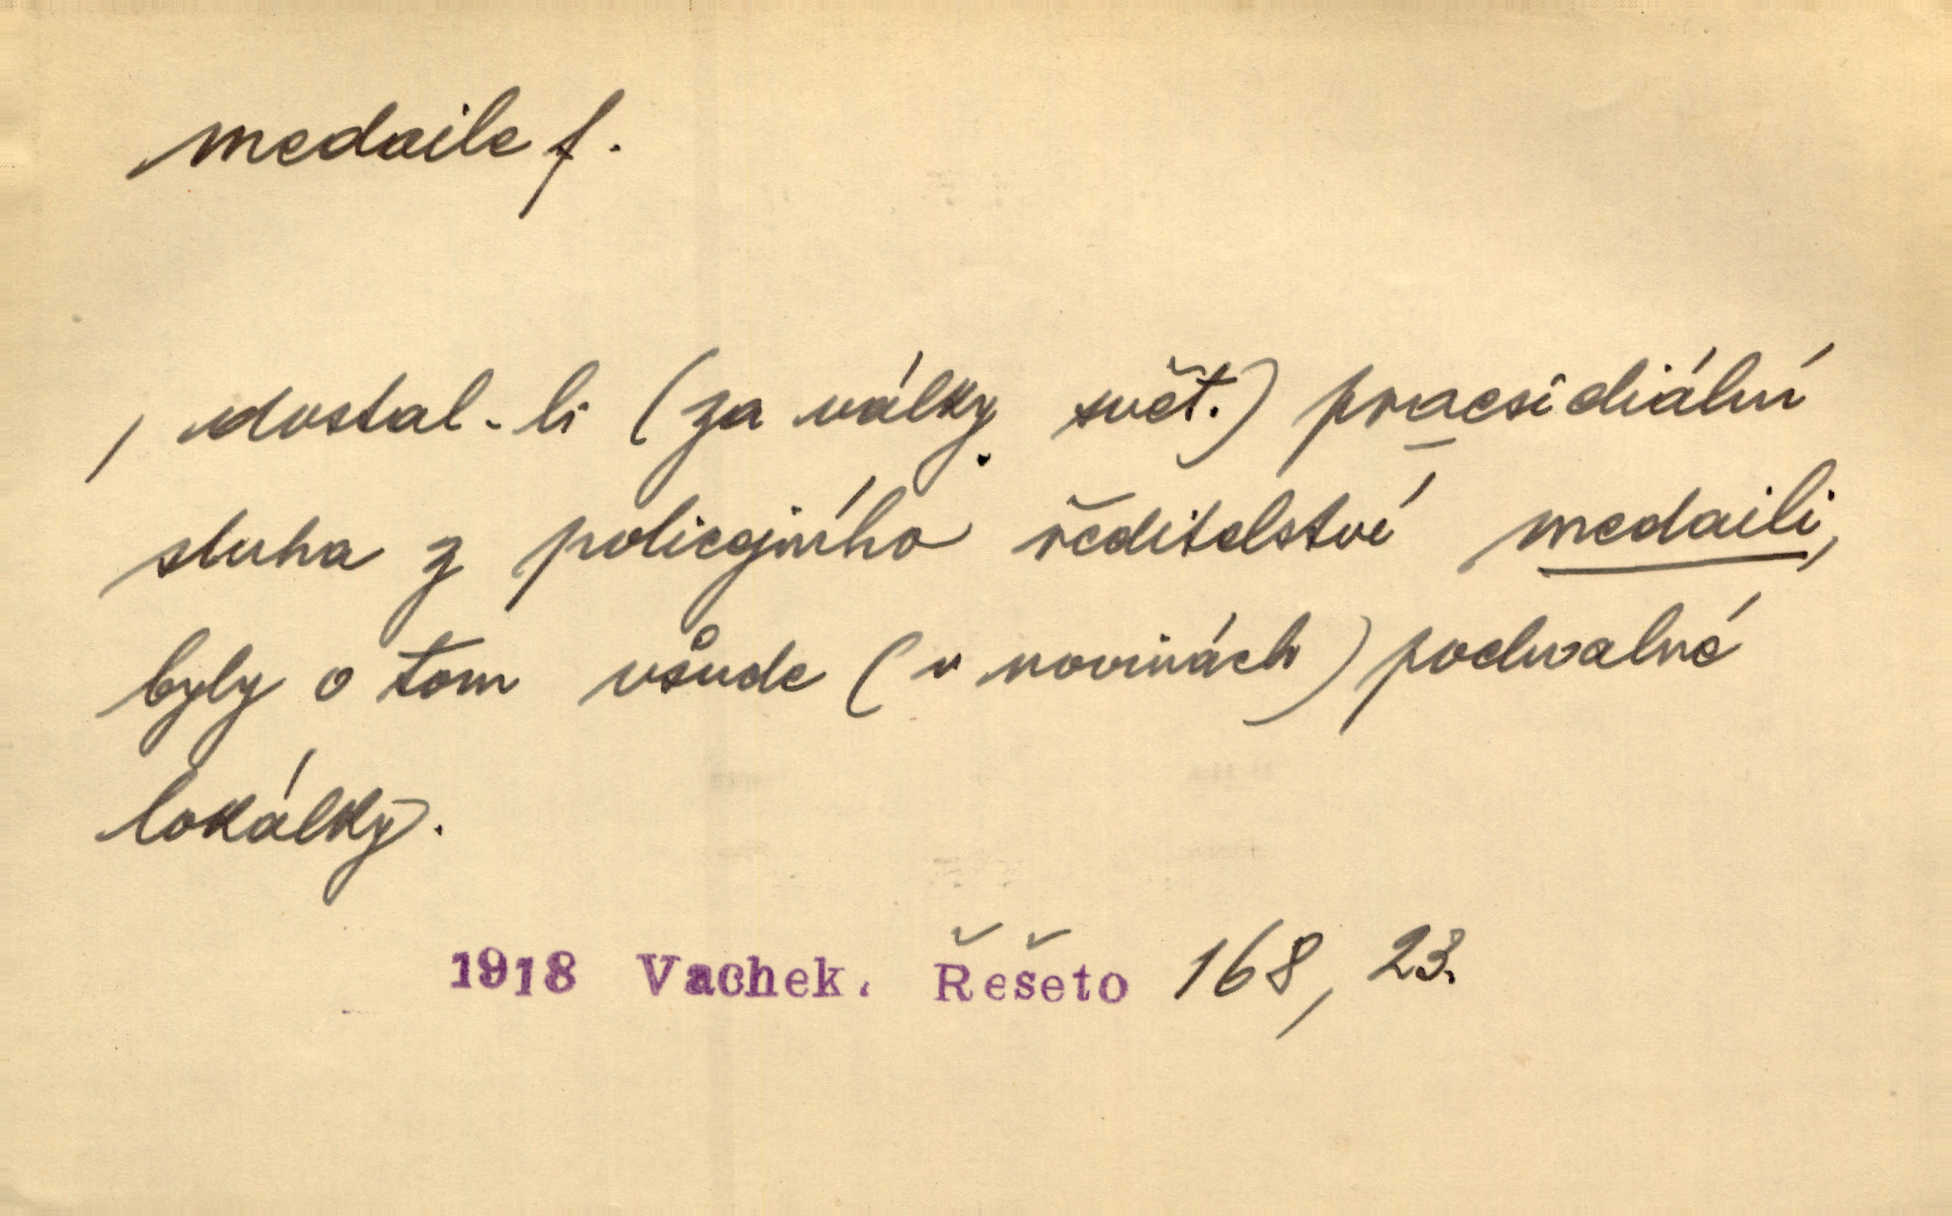 medaile f.
, dostal-li (za války svět.) praesidiální
sluha z policejního ředitelství medaili,
byly o tom všude (v novinách) pochvalné
lokálky.
1918 Vachek. Řešeto 168, 23.